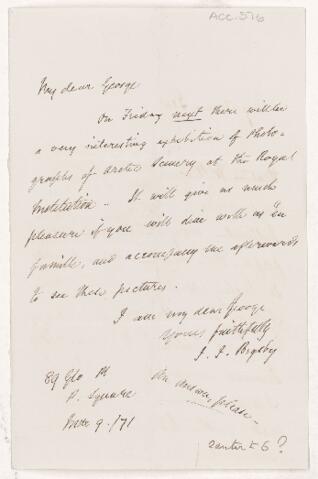 ACC. 576
My dear George
On Friday next there will be
a very interesting exhibition of Photo-
graphs of Arctic Scenery at the Royal
Institution - It will give us much
pleasure if you will dine with us "en
famille, and accompany me afterwards
to see these pictures.
I am my dear George
Yours faithfully
J. J. Bigsby
89 Glo Pl
P. Square
An answer, please -
9. /71
6?